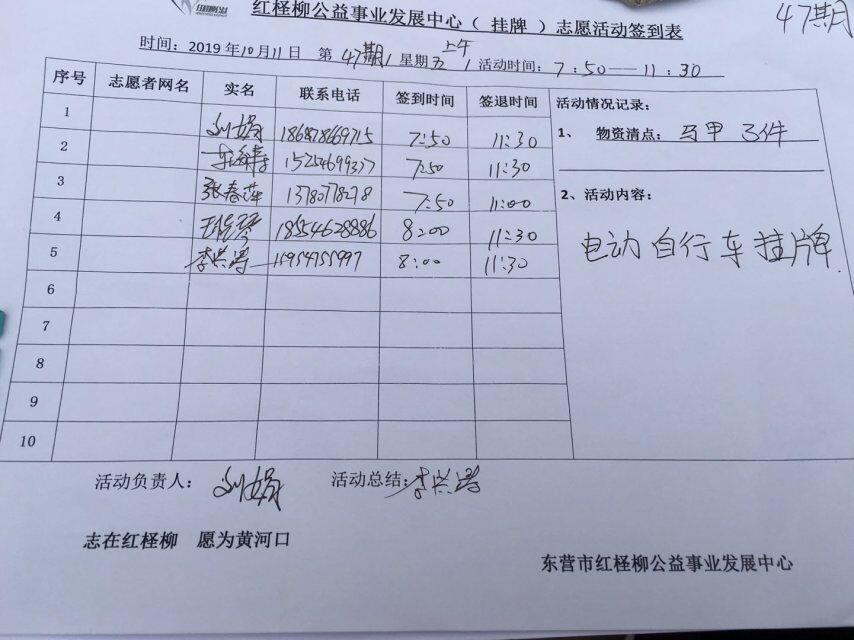 红柽柳公益事业发展中心（ 挂牌 ）志愿活动签到表
47期
时间：2019年10月11日 第47期 星期五上午 活动时间：7:50——11:30
序号 志愿者网名 实名 联系电话 签到时间 签退时间 活动情况记录：
1 刘娟 18687869715 7:50 11:30
1、 物资清点：马甲 3件
2 7:50 11:30
3 张春萍 13780778278 7:50 11:00
2、活动内容：
4 18554628886 8:00 11:30
电动自行车挂牌
5 15954755997 8:00 11:30
6
7
8
9
10
活动负责人：刘娟 活动总结：
志在红柽柳 愿为黄河口
东营市红柽柳公益事业发展中心